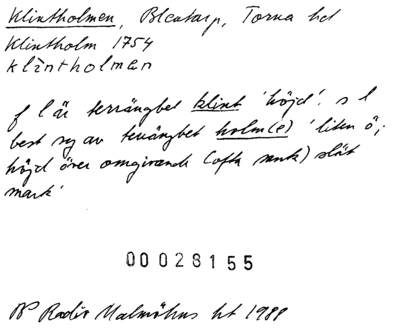 Klintholmen, Bleatarp, Torna hd
Klintholm 1754
klintholmen
f l är terrängbet klint 'höjd'. s l
best sg av terrängbet holm(e) 'liten ö;
höjd över omgivande (ofta sank) slät
mark'
00028155
Radio Malmöhus ht 1988